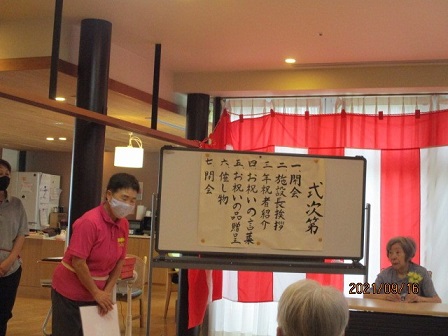 式次第
一開会
二施設長挨拶
三年祝者紹介
四お祝いの言葉
五お祝いの品贈呈
六催し物
七閉会
2021/09/16